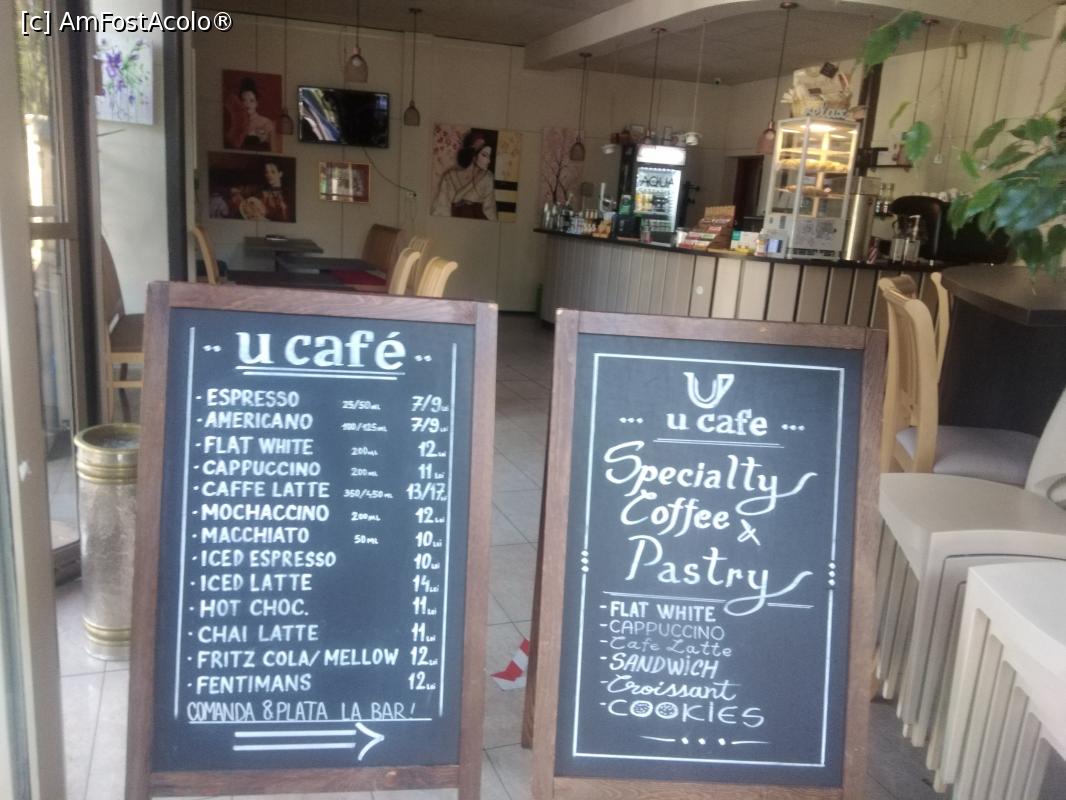 [c] AmFostAcolo®
relax
AQUA
u café
- ESPRESSO 25/50ML 7/9 Lei
- AMERICANO 100/125ML 7/9 Lei
- FLAT WHITE 200ML 12 Lei
- CAPPUCCINO 200ML 11 Lei
- CAFFE LATTE 350/450ML 13/17 Lei
- MOCHACCINO 200ML 12 Lei
- MACCHIATO 50ML 10 Lei
- ICED ESPRESSO 10 Lei
- ICED LATTE 14 Lei
- HOT CHOC. 11 Lei
- CHAI LATTE 11 Lei
- FRITZ COLA/MELLOW 12 Lei
- FENTIMANS 12 Lei
COMANDA & PLATA LA BAR!
U
u cafe
Specialty
Coffee &
Pastry
- FLAT WHITE
- CAPPUCCINO
- Cafe Latte
- SANDWICH
- Croissant
- COOKIES